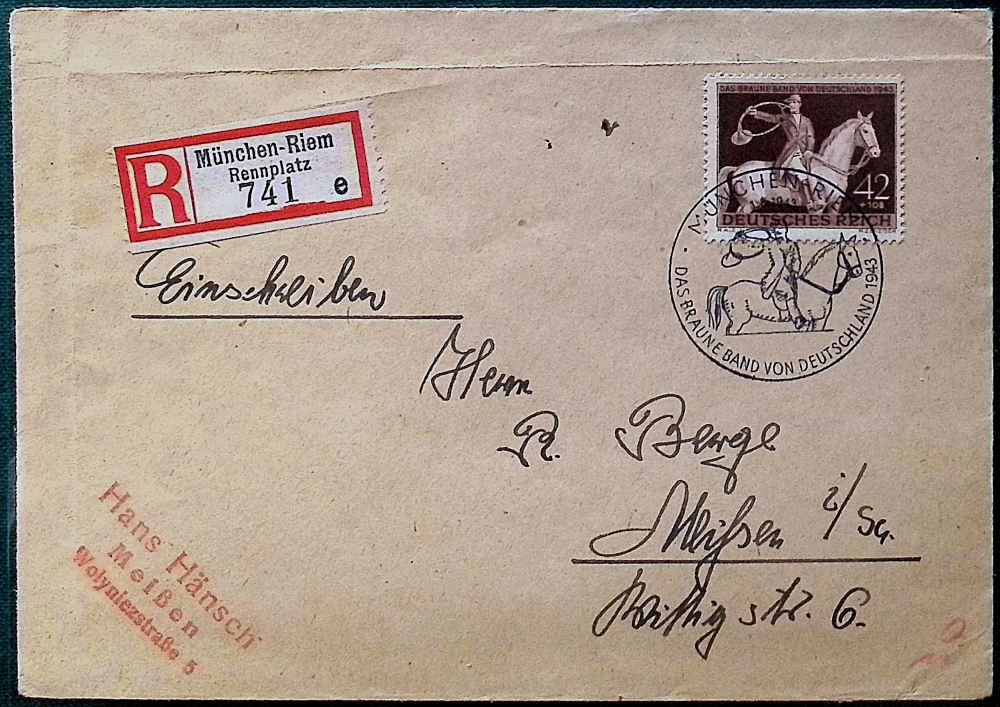 DAS BRAUNE BAND VON DEUTSCHLAND 1943
42
+108
DEUTSCHES REICH
MÜNCHEN-RIEM
1.8.1943
DAS BRAUNE BAND VON DEUTSCHLAND 1943
R
München-Riem
Rennplatz
741 e
Einschreiben
Herrn
R. Berge
Meißen i/Sa.
str. 6.
Hans Hänsch
Meißen
Wolyniezstraße 5